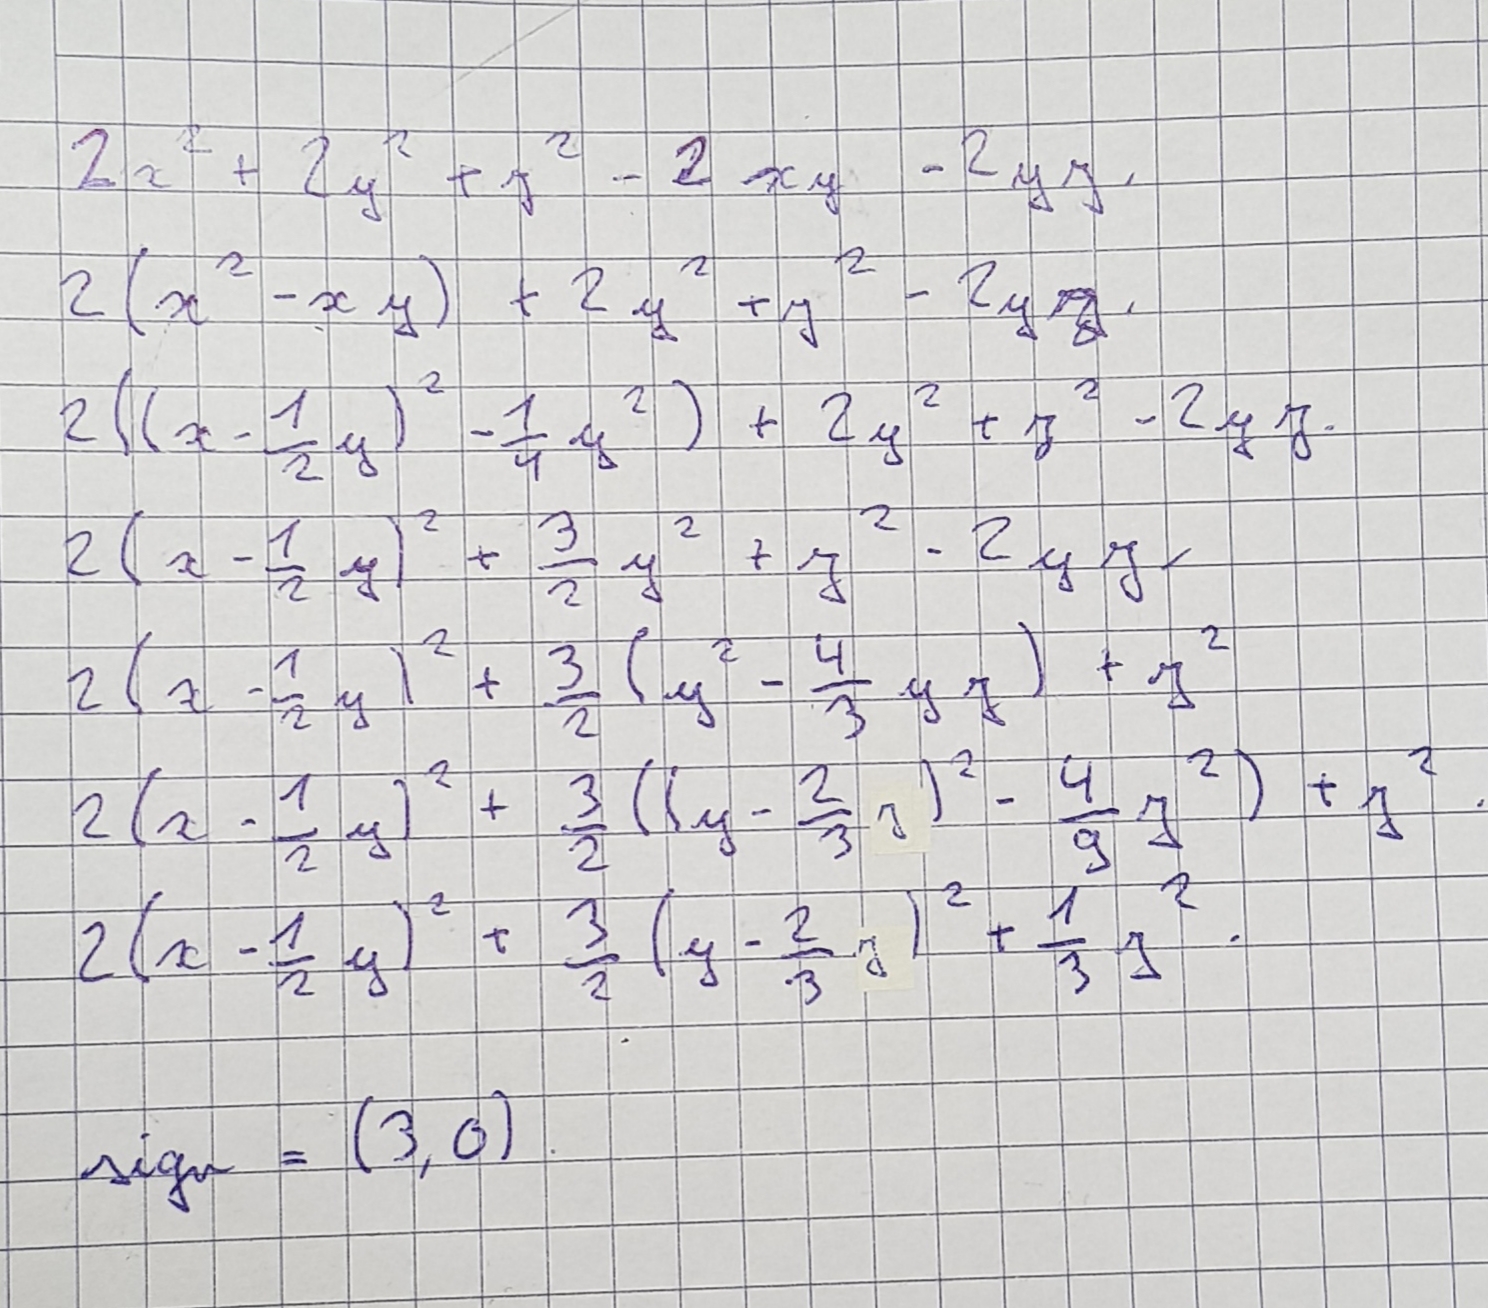 2x² + 2y² + z² - 2xy - 2yz.
2(x² - xy) + 2y² + z² - 2yz.
2((x - 1/2 y)² - 1/4 y²) + 2y² + z² - 2yz.
2(x - 1/2 y)² + 3/2 y² + z² - 2yz
2(x - 1/2 y)² + 3/2 (y² - 4/3 yz) + z²
2(x - 1/2 y)² + 3/2 ((y - 2/3 z)² - 4/9 z²) + z².
2(x - 1/2 y)² + 3/2 (y - 2/3 z)² + 1/3 z².
sign = (3,0).